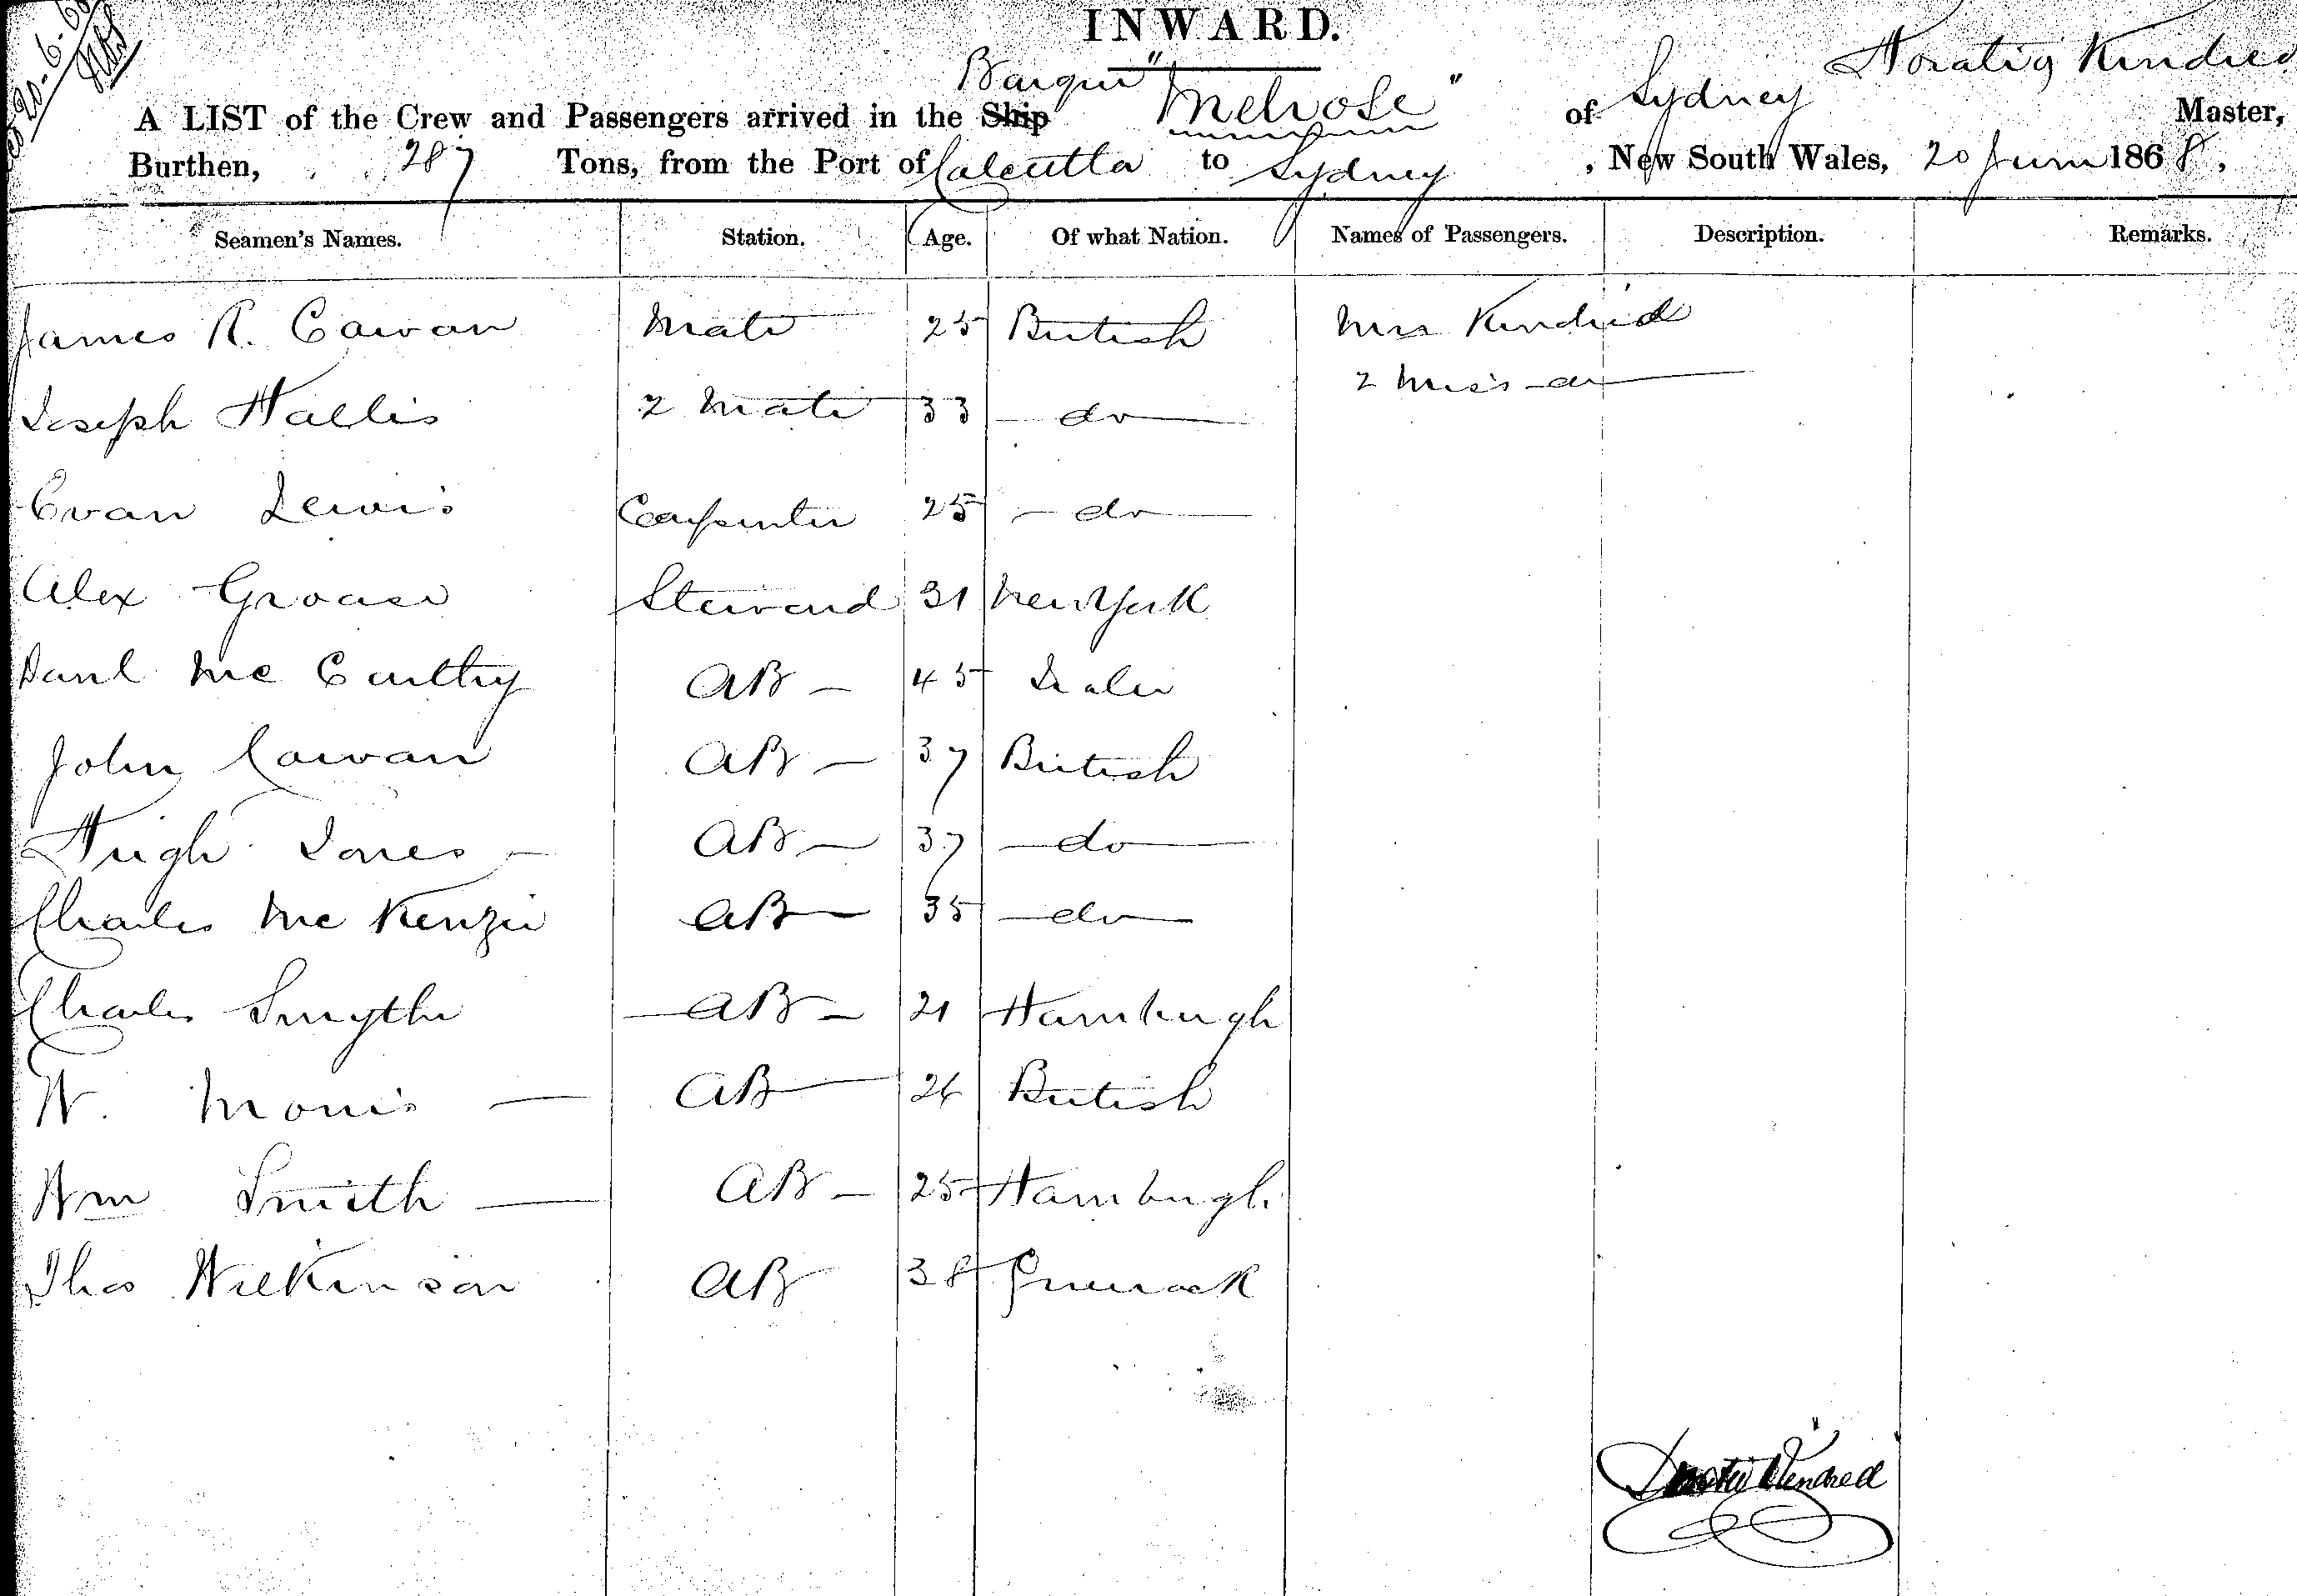 INWARD.
20-6-68
Barque "Melrose" of Sydney Horatio Kindred
A LIST of the Crew and Passengers arrived in the Ship of Master,
Burthen, 287 Tons, from the Port of Calcutta to Sydney , New South Wales, 20 June 1868.
Seamen's Names. Station. Age. Of what Nation. Names of Passengers. Description. Remarks.
James R. Cowan Mate 25 British Mrs Kindred
2 Miss do
Joseph Hallis 2 Mate 33 do
Evan Lewis Carpenter 25 do
Alex Steward 31 New York
Danl Mc Carthy AB 45
John Cowan AB 37 British
Hugh Jones AB 37 do
Charles Mc Kenzie AB 35 do
Charles Smythe AB 21 Hamburgh
W. Morris AB 26 British
Wm Smith AB 25 Hamburgh
Thos Wilkinson AB 38 Greenock
Kindred